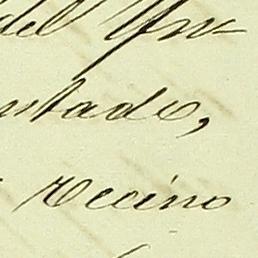 del Yn-
ntado,
vecino